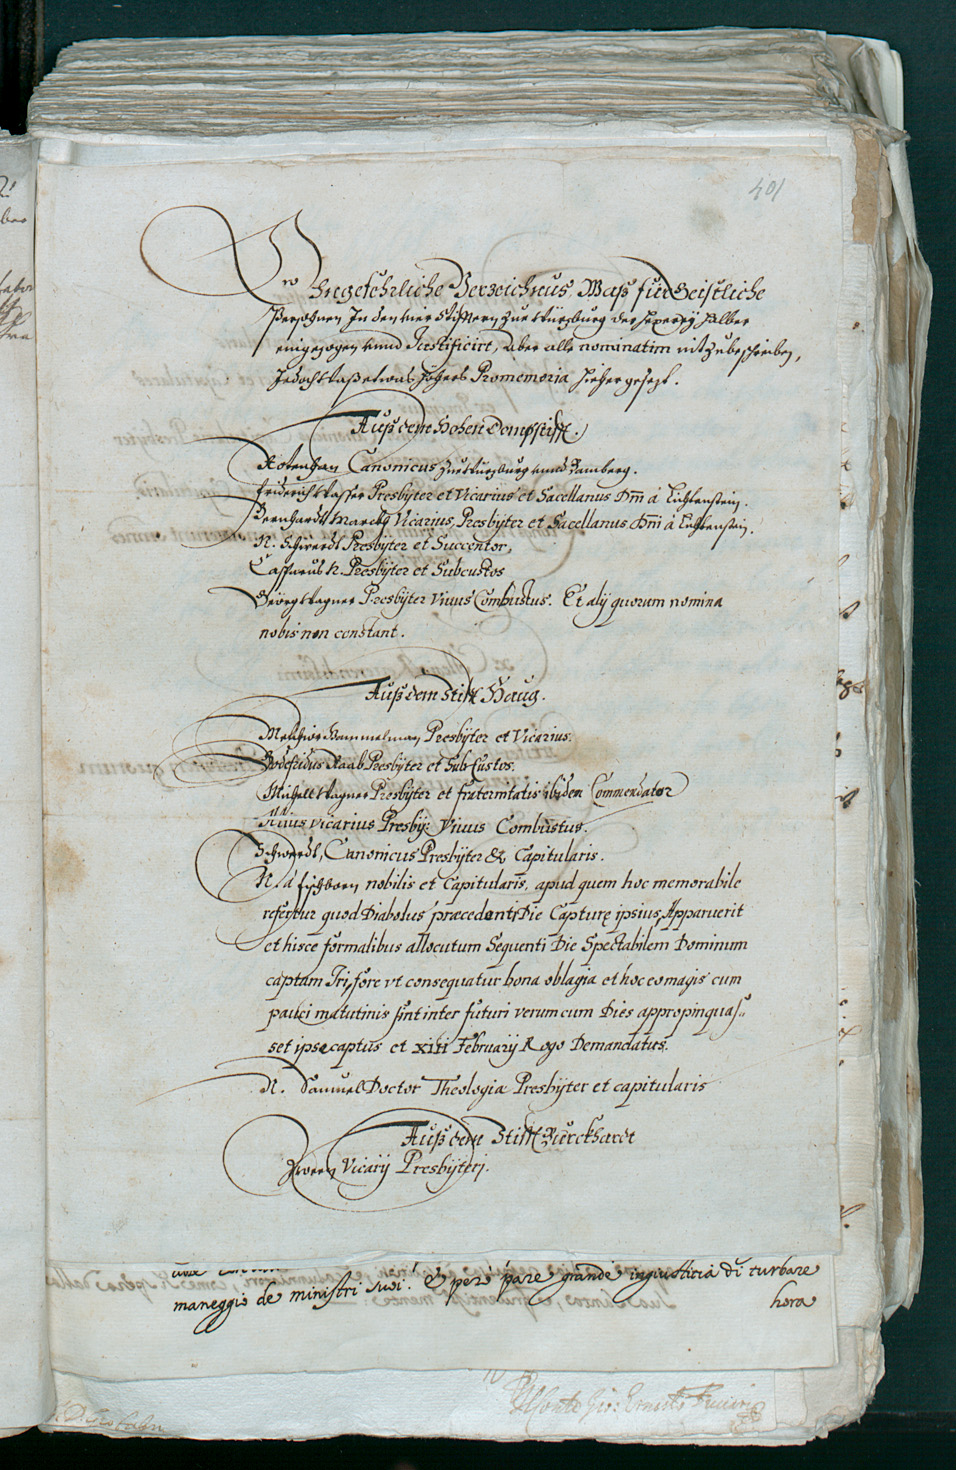 401
Ungefehrliche Verzeichnus, Waß für Geistliche
Persohnen In den vier Stifftern zue Würzburg der Hexerey halber
eingezogen unnd Justificirt, aber alle nominatim nit zubeschreiben,
Jedoch etwas Promemoria hieher gesezt.
Auß dem Hohen Dompstifft.
Rotenhan Canonicus zue Würzburg unnd Bamberg.
Friderich Wasser Presbyter et Vicarius et Sacellanus Dm̄ à Lichtenstein.
Bernhardt Marckh Vicarius, Presbyter et Sacellanus Dm̄i à Lichtenstein.
N. Schwerdt Presbyter et Succentor,
Casparus N. Presbyter et Subcustos
Geörg Wagner Presbyter Vivus Combustus. Et alij quorum nomina
nobis non constant.
Auß dem Stifft Haug.
Melchior Hammelman Presbyter et Vicarius.
Godefridus Raab Presbyter et Sub-Custos.
Michael Wagner Presbyter et fraternitatis ibidem Commendator
Vicarius Presby: Vivus Combustus.
Schwerdt, Canonicus Presbyter & Capitularis.
N. à fischborn nobilis et Capitularis, apud quem hoc memorabile
refertur quod Diabolus præcedenti Die Capturę ipsius, Apparuerit
et hisce formalibus allocutum Sequenti Die Spectabilem Dominum
captam Iri, fore vt consequatur bona oblagia et hoc eo magis cum
pauci matutinis sint inter futuri verum cum Dies appropinquas⸗
set ipse captus et XIII February Rogo Demandatus.
N. Samuel Doctor Theologiæ Presbyter et capitularis
Auß dem Stifft Burckhardt
Zween Vicarij Presbijterj.
maneggio de ministri suoi. è pero pare grande ingiustitia di turbare
hora